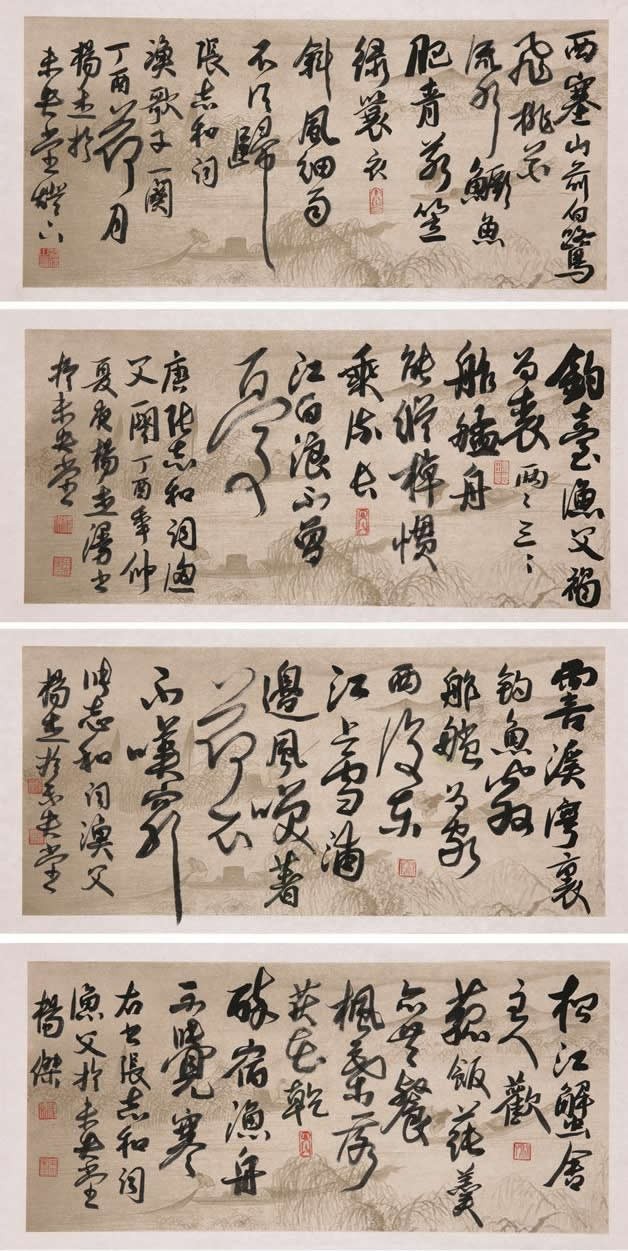 西塞山前白鷺
飛桃花
流水鱖魚
肥青箬笠
綠蓑衣
斜風細雨
不須歸
張志和詞
漁歌子一闋
丁酉荷月
楊杰於
未央堂燈下
釣臺漁父褐
為裘兩兩三三
舴艋舟
能縱棹慣
乘流長
江白浪不曾
憂
唐張志和詞漁
父闋丁酉年仲
夏夜楊杰漫書
於未央堂
霅溪灣裏
釣魚翁
舴艋為家
西復東
江上雪浦
邊風笑著
荷衣
不嘆窮
張志和詞漁父
楊杰於未央堂
松江蟹舍
主人歡
菰飯蓴羹
亦共餐
楓葉落
荻花乾
醉宿漁舟
不覺寒
右書張志和詞
漁父於未央堂
楊傑